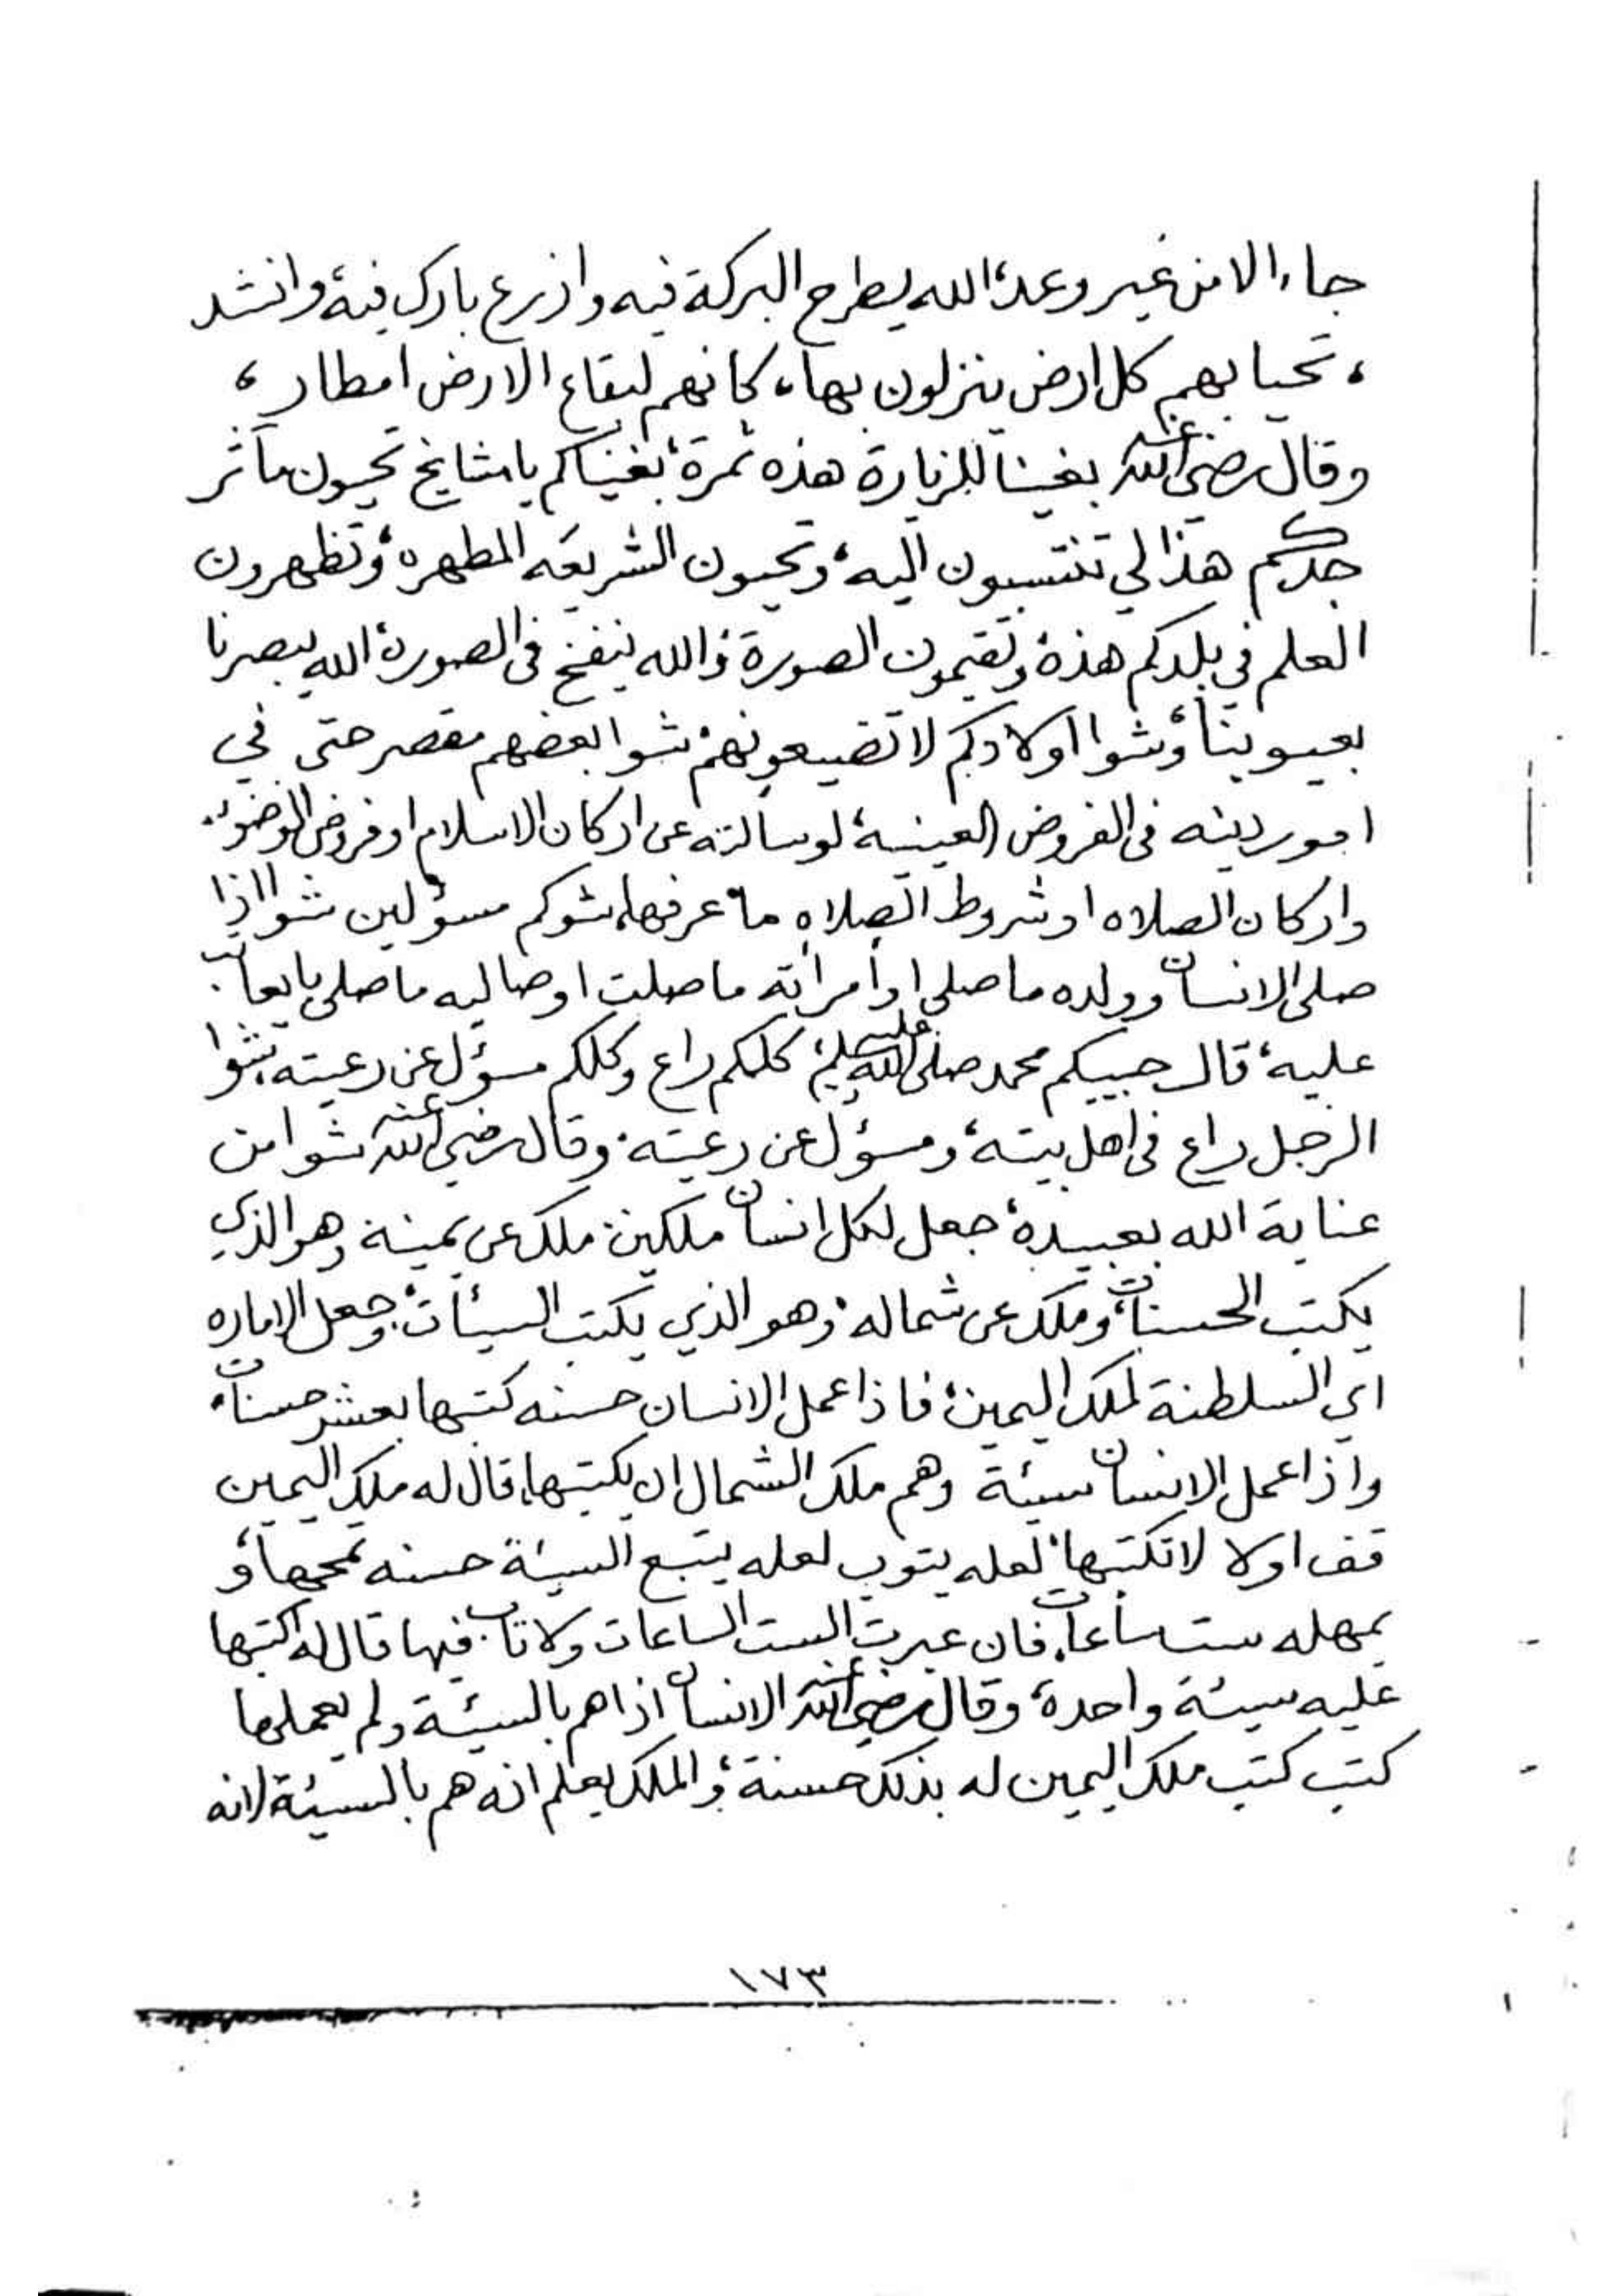 جاء الا من غير وعد، الله يطرح البركة فيه واذرع بارك فيه، وانشد
، تحيا بهم كل ارض ينزلون بها، كانهم لبقاع الارض امطار ،
وقال رضي الله عنه بغينا للزيارة هذه ثمرة، بغيناكم يا مشايخ تحيون مآثر
جدكم هذا لي تنتسبون اليه، وتحيون الشريعه المطهره، وتظهرون
العلم في بلدكم هذه، وتقيمون الصورة، والله ينفخ في الصورة، الله يبصرنا
بعيوبنا، وشوا اولادكم لا تضيعونهم، شوا بعضهم مقصر حتى في
امور دينه في الفروض العينيه، لو سالته عن اركان الاسلام او فروض الوضوء،
واركان الصلاه او شروط الصلاه ما عرفها، شوكم مسؤلين شوا اذا
صلى الانسان وولده ما صلى او امراته ما صلت او صاليه ما صلى يا تعاب
عليه، قال حبيبكم محمد صلى الله عليه وسلم، كلكم راع وكلكم مسؤل عن رعيته، شوا
الرجل راع في اهل بيته، ومسؤل عن رعيته، وقال رضي الله عنه شوا من
عناية الله بعبيده، جعل لكل انسان ملكين، ملك عن يمينه وهو الذي
يكتب الحسنات، وملك عن شماله، وهو الذي يكتب السيئات، وجعل الاماره
اي السلطنة لملك اليمين، فاذا عمل الانسان حسنه كتبها بعشر حسنات،
واذا عمل الانسان سيئة وهم ملك الشمال ان يكتبها، قال له ملك اليمين
قف اولا لا تكتبها، لعله يتوب لعله يتبع السيئة حسنه تمحها، و
يمهله ست ساعات، فان عبرت الست الساعات ولا تاب فيها قال له اكتبها
عليه سيئة واحدة، وقال رضي الله عنه الانسان اذا هم بالسيئة ولم يعملها
كتب كتب ملك اليمين له بذلك حسنة، والملك يعلم انه هم بالسيئة لانه
١٧٣